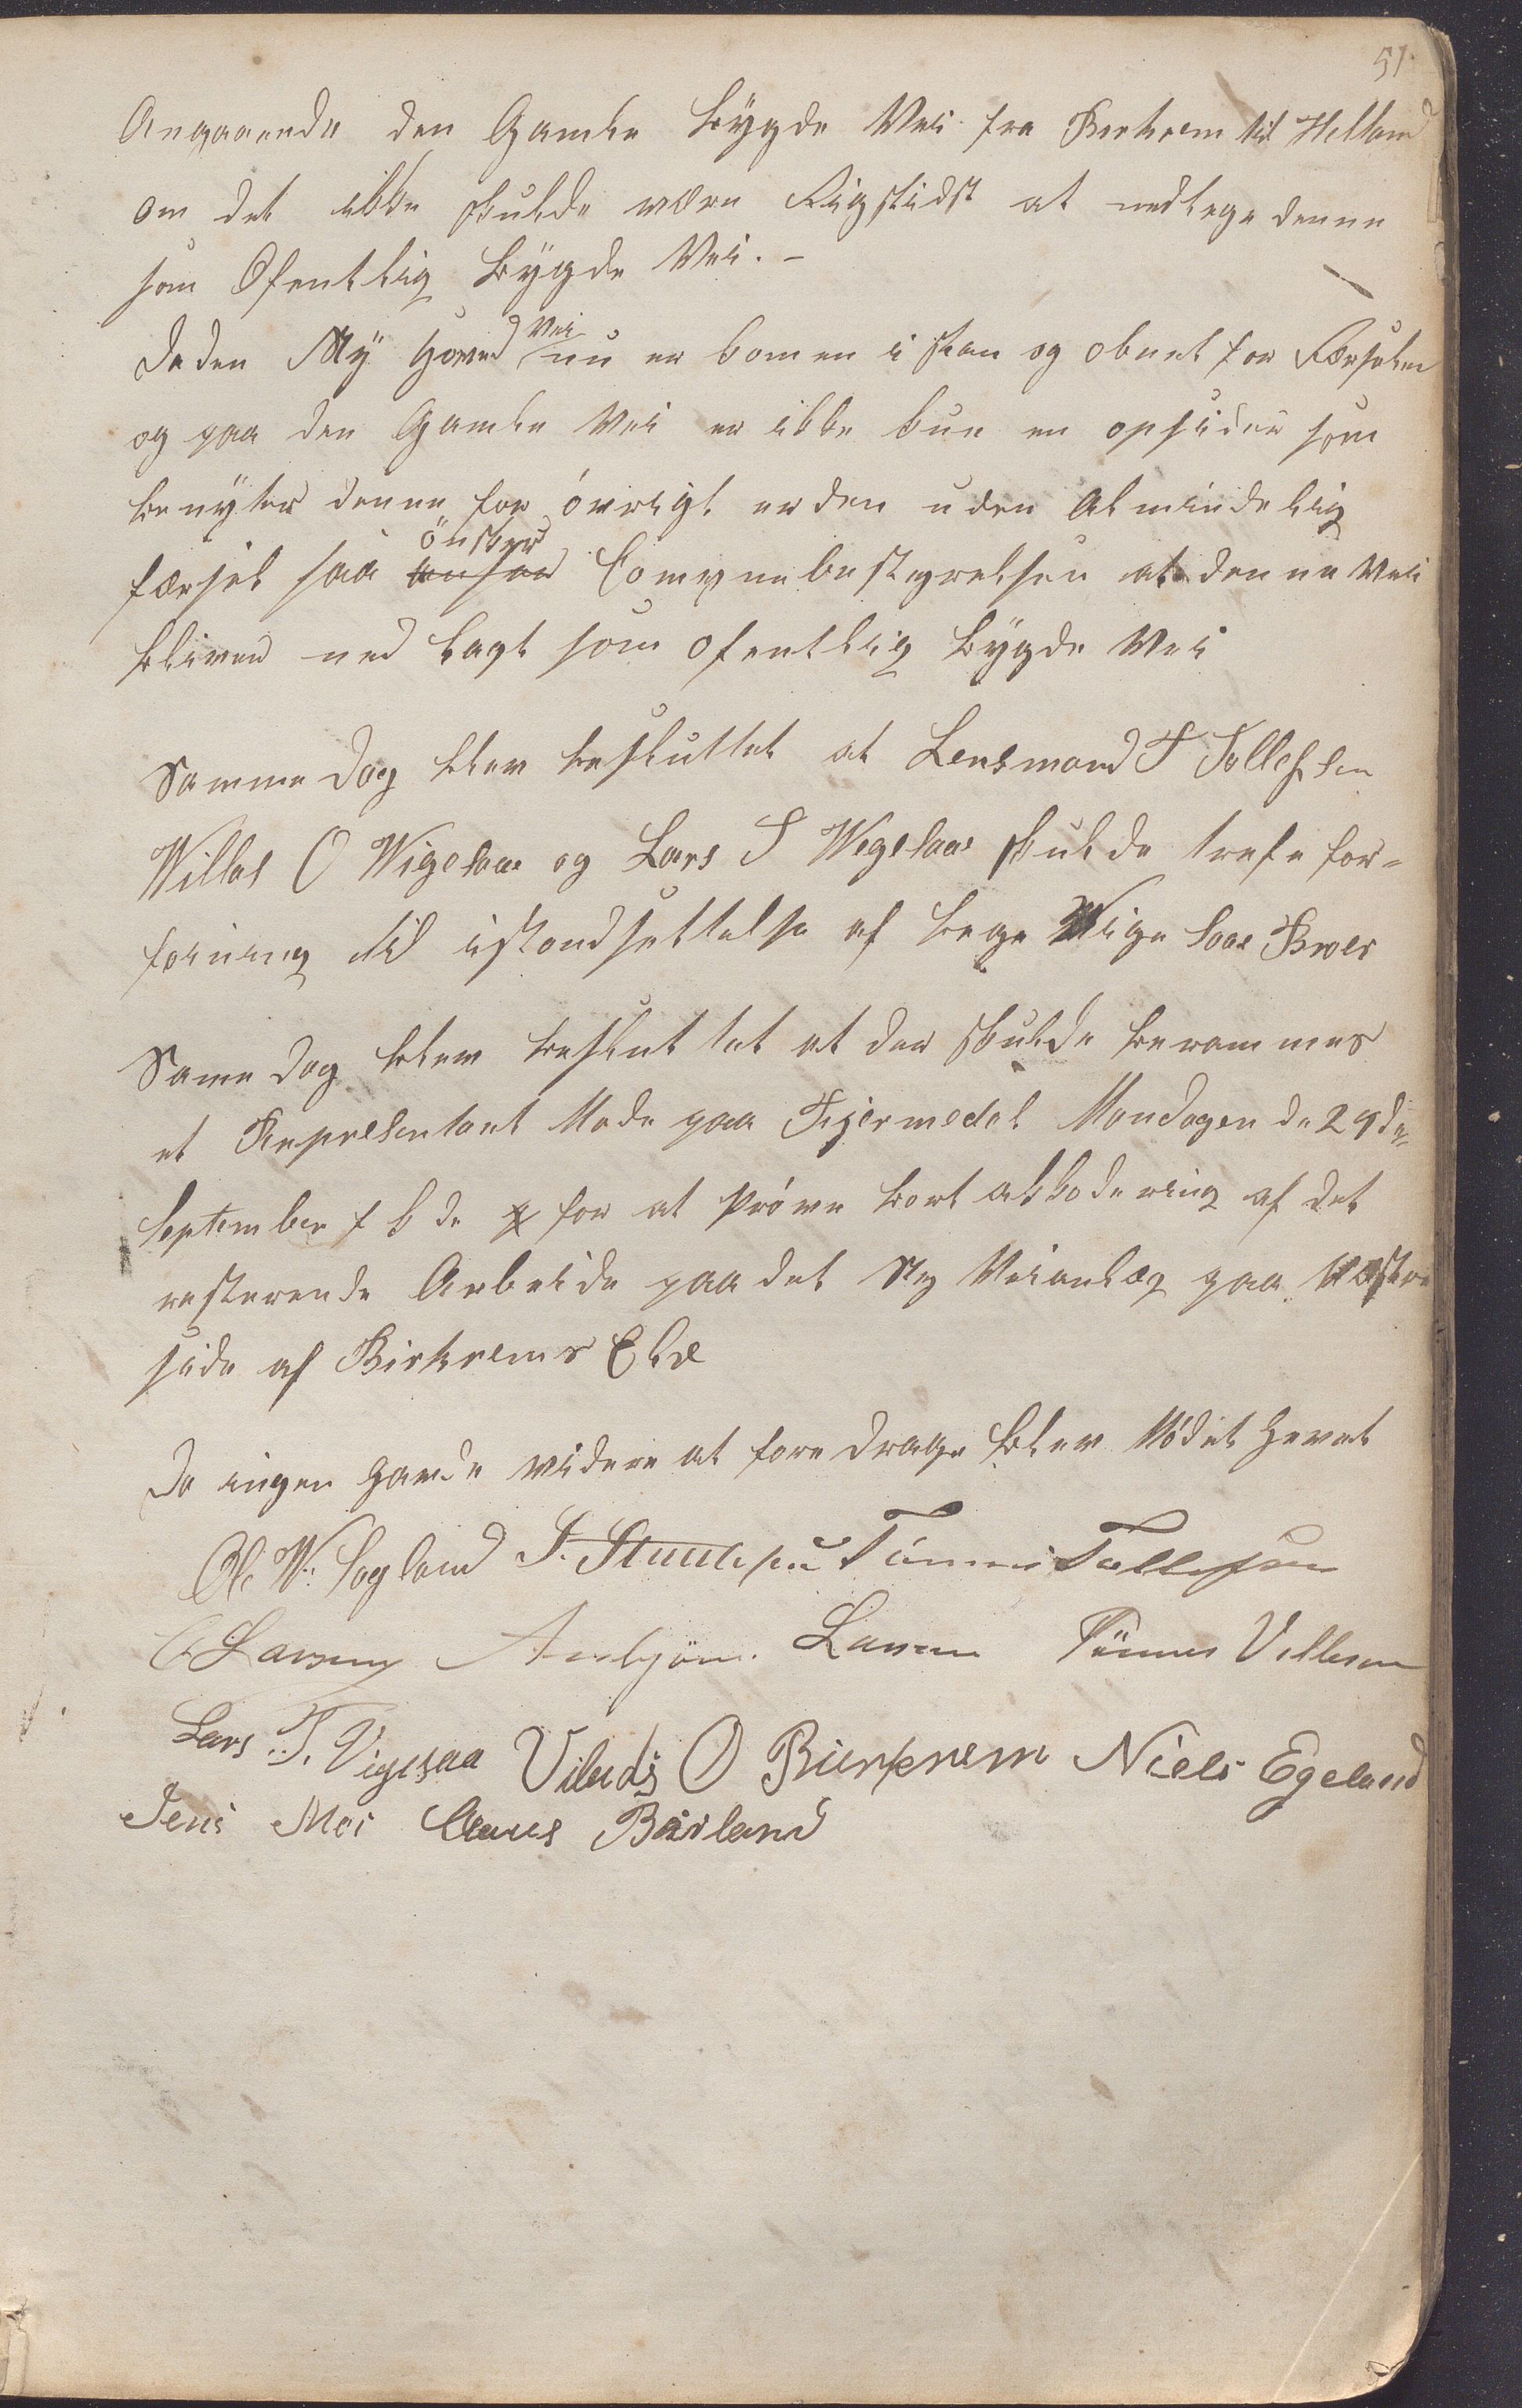 51
Angaaende den Gamle Bÿgde Vei fra Birkrem til Helland
om det ikke skulde være Rigstidst at nedlege denne
som Ofentlig Bÿgde Vei. -
Da den Nÿ Hoved Vei nu er komen i stan og obnet for Færselen
og paa den Gamle Vei er ikke kun en opsider som
benyter denne for övrigt er den uden Almindelig
færsel saa anser önsker Comynebestyrelsen at denne Vei
bliver ned lagt som ofentlig Bÿgde Vei
Samme Dag blev besluttet at Lensmand T Tollefsen
Willas O Wigesaa og Lars T Wigesaa skulde trefe for=
foining til istandsettelse af bege Wige saae Broer
Same Dag blev besluttet at der skulde berammes
et Representant Møde paa Fjermedal Mandagen de 29de
September f k de for at Pröve bort akkodering af det
resterende Arbeide paa det Ny Veianlæg paa Vestre
side af Birkrems Elv
Da ingen havde videre at foredrage blev Mödet Hevet
Ol. W. Sogland Tönnes Tollefsen
Larsen Asbjörn Larsen Tönnes Villesen
Lars T. Vigesaa O Bierkrem Niels Egeland
Jens Moi Claus Birland